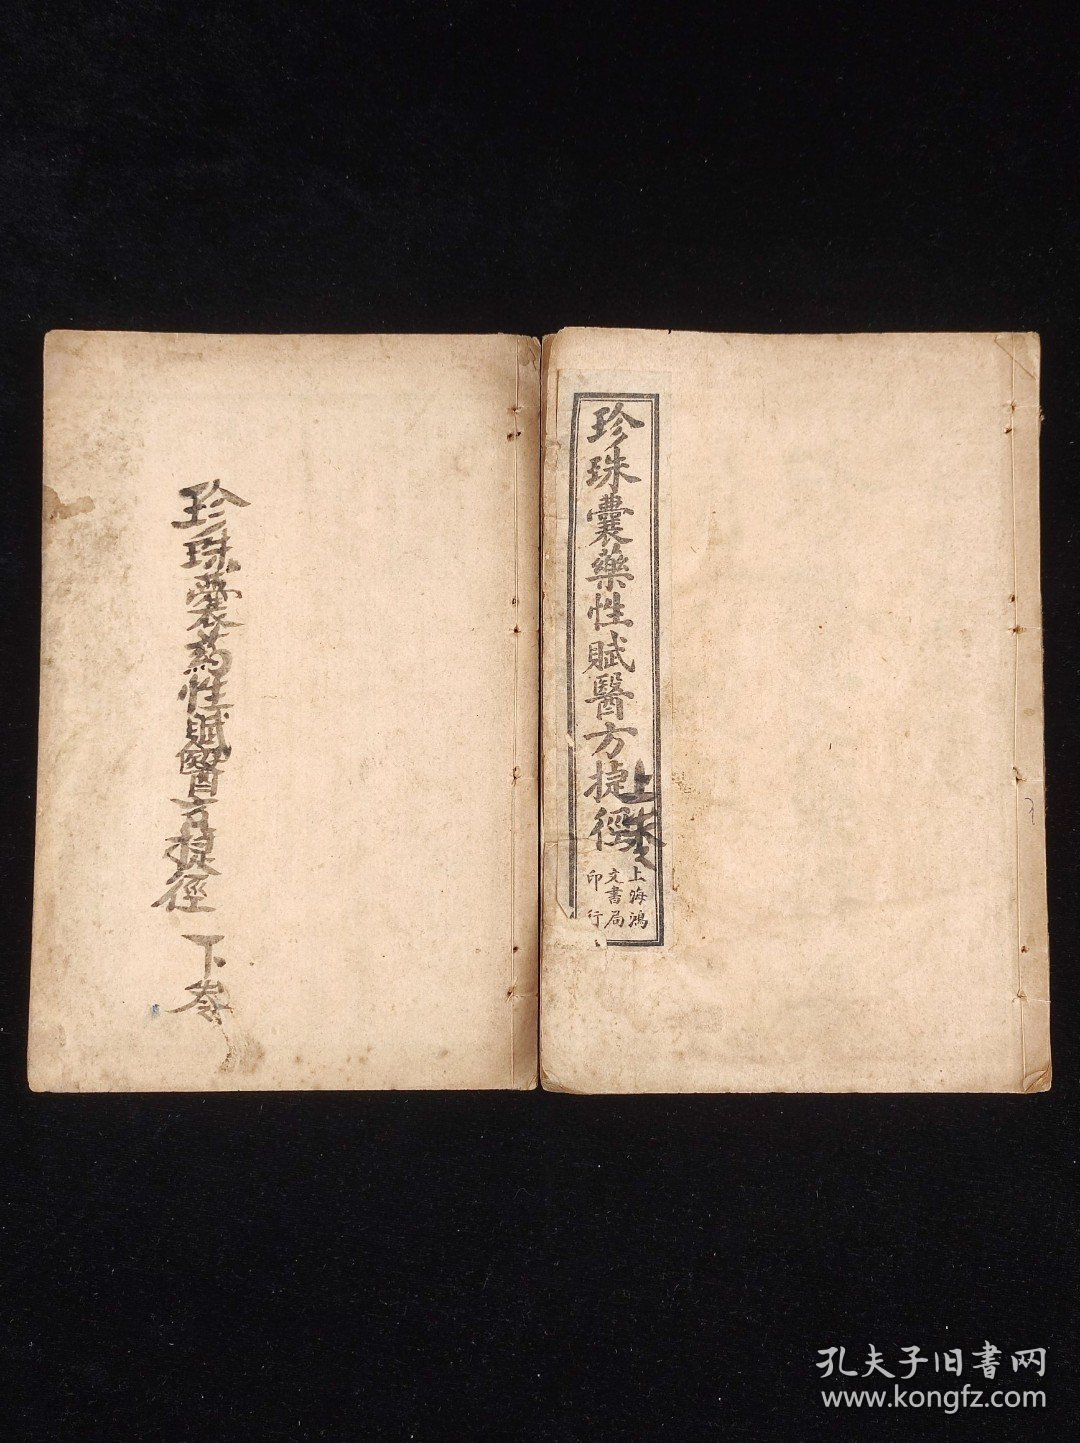 珍珠囊藥性賦醫方捷徑
上卷
上海鴻
文書局
印行
珍珠囊药性賦醫方捷徑 下卷
孔夫子旧書网
www.kongfz.com